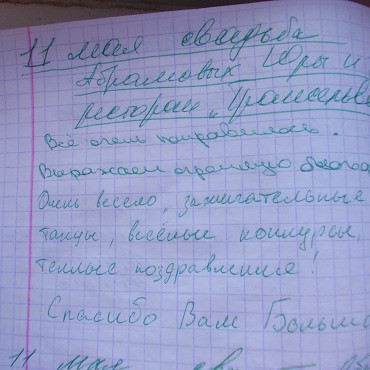 11 мая свадьба
Абрамовых Юры и
ресторан „Трансильв
Всё очень понравилось.
Выражаем огромную благода
Очень весело, зажигательные
танцы, весёлые конкурсы,
теплые поздравления!
Спасибо Вам Больш
11 мая